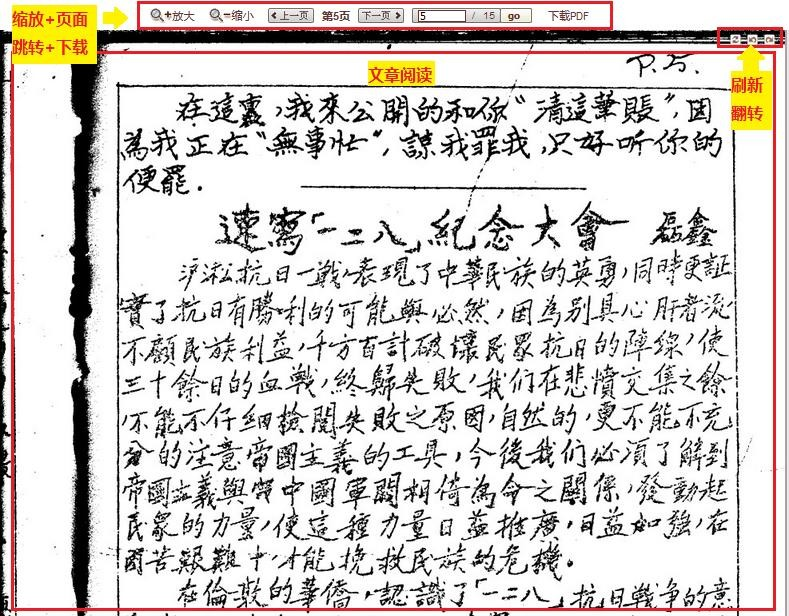 缩放+页面
跳转+下载
+放大 =缩小 上一页 第5页 下一页 5 / 15 go 下载PDF
文章阅读
刷新
翻转
P.5.
在這裏,我來公開的和你“清這筆賬”,因
為我正在“無事忙”,諒我罪我,只好听你的
便罷.
速寫「一二八」紀念大會 磊鑫
沪淞抗日一戰,表現了中華民族的英勇,同時更証
實了抗日有勝利的可能與必然,因為別具心肝者流
不顧民族利益,千方百計破壞民眾抗日的陣線,使
三十餘日的血戰,終歸失敗,我们在悲憤交集之餘
,不能不仔細檢閱失敗之原因,自然的,更不能不充
分的注意帝國主義的工具,今後我们必須了解到
帝國主義與中國軍閥相倚為命之關係,發動起
民眾的力量,使這種力量日益推廣,日益加強,在
困苦艱難中,才能挽救民族的危機。
在倫敦的華僑,認識了「一二八」抗日戰争的意